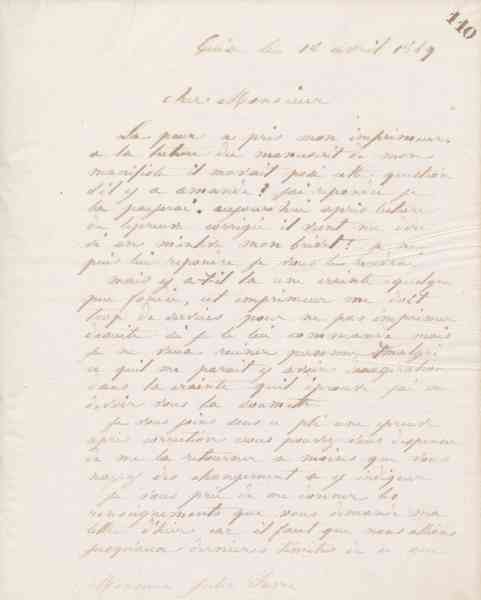 110
Guise le 12 avril 1869
cher Monsieur
La peur a pris mon imprimeur
a la lecture du manuscrit de mon
manifeste il m'avait posé cette question
s'il y a amande? j'ai reponde je
la payerai. aujourd'hui apres lecture
de l'epreuve corrigée il vient me dire
si on m'interdit mon brevet? je ne
puis lui repondre je vous le rendrai
mais y a-t-il la une crainte quelque
peu fondée, cet imprimeur me doit
trop de services pour ne pas imprimer
ensuite si je le lui commande mais
je ne veux ruiner personne & malgré
ce qu'il me parait y avoir d'exagération
dans la crainte qu'il éprouve j'ai cru
devoir vous la soumettre
Je vous joins sous ce pli une epreuve
apres correction vous pouvez vous dispenser
de me la retourner a moins que vous
n'ayez des changement a y indiquer
Je vous prie de me donner les
renseignements que vous demande ma
lettre d'hier car il faut que nous allions
jusqu'aux dernieres limites de ce que
Monsieur Jules Favre